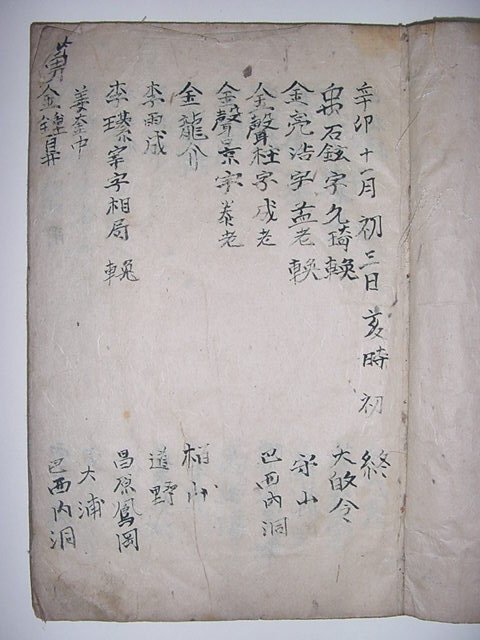 辛卯十一月初三日亥時初終
禹石鉉字久琦輓 大酉令
金亮浩字孟老輓 守山
金聲柱字成老 巴西內洞
金聲景字泰老
金龍介 栢山
李雨成 道野
李瑮宰字相局輓 昌原鳳岡
姜奎中 大浦
金鍾鼻 巴西內洞